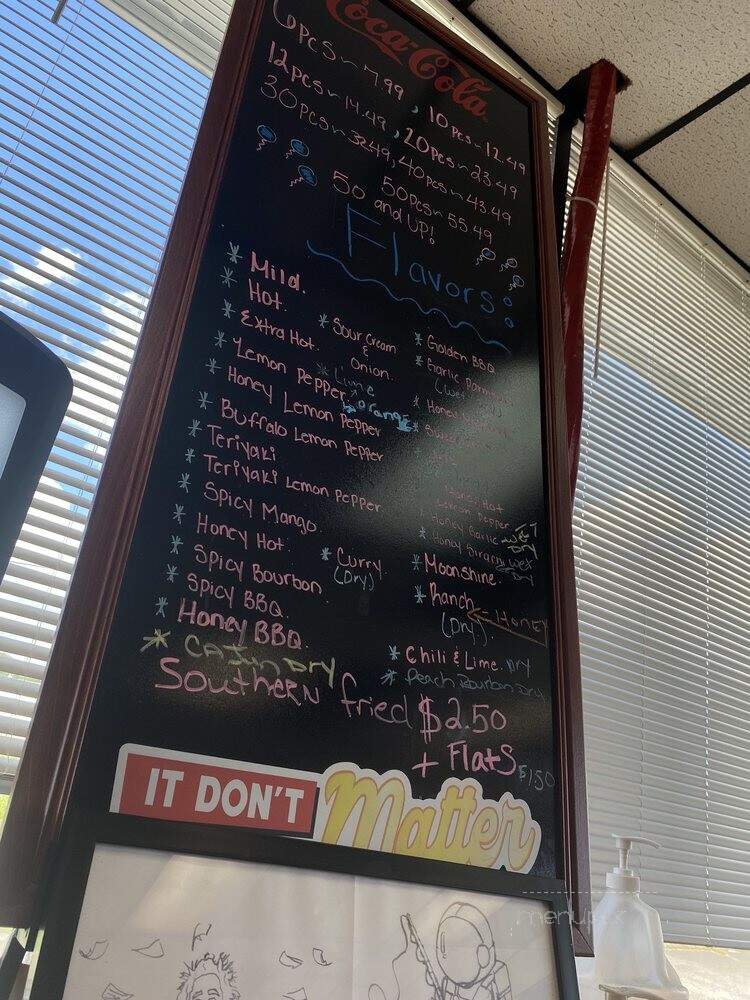 Coca-Cola
6pcs~7.99, 10pcs~12.49
12pcs~14.49, 20pcs~23.49
30pcs~32.49, 40pcs~43.49
50pcs~55.49
50 and UP!
Flavors:
* Mild.
* Hot.
* Extra Hot.
* Lemon Pepper * Lime
* Orange
* Honey Lemon Pepper
* Buffalo Lemon Pepper
* Teriyaki
* Teriyaki Lemon Pepper
* Spicy Mango
* Honey Hot
* Spicy Bourbon
* Spicy BBQ
* Honey BBQ.
* CAJUN DRY
* Sour Cream
&
Onion.
* Curry.
(Dry)
* Golden BBQ
* Garlic
* Honey
Honey Hot
Lemon Pepper
* Honey Garlic WET
DRY
* Honey Wet
Dry
* Moonshine.
* Ranch HONEY
(Dry).
* Chili & Lime. DRY
* Peach Bourbon Dry
Southern fried $2.50
+ Flats $1.50
IT DON'T Matter